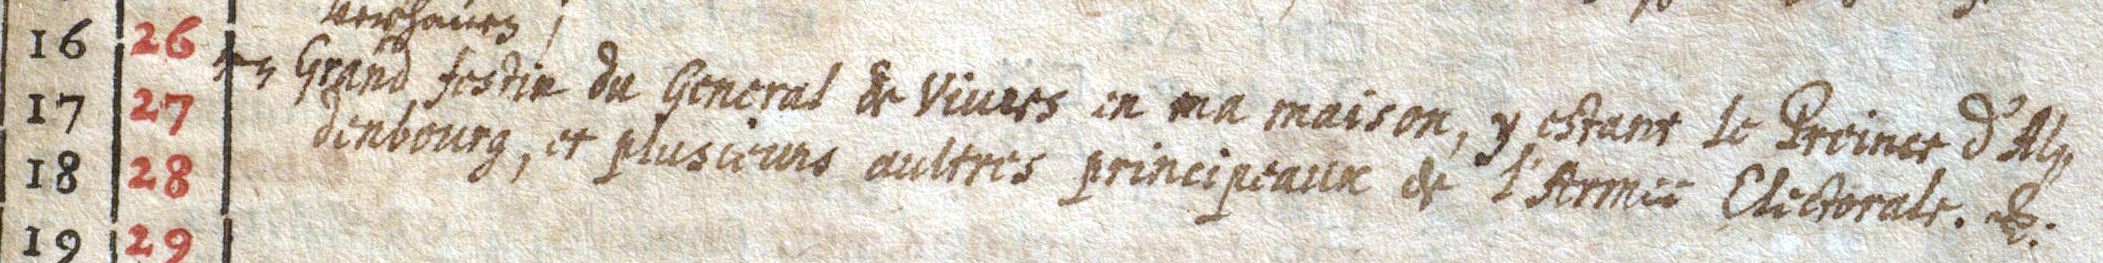 16 26
17 27 Grand festin du General de Viures en ma maison, y estant le Preince d'Al„
18 28 denbourg, et plusieurs aultres principeaux de l'Armée Electorale. &.
19 29